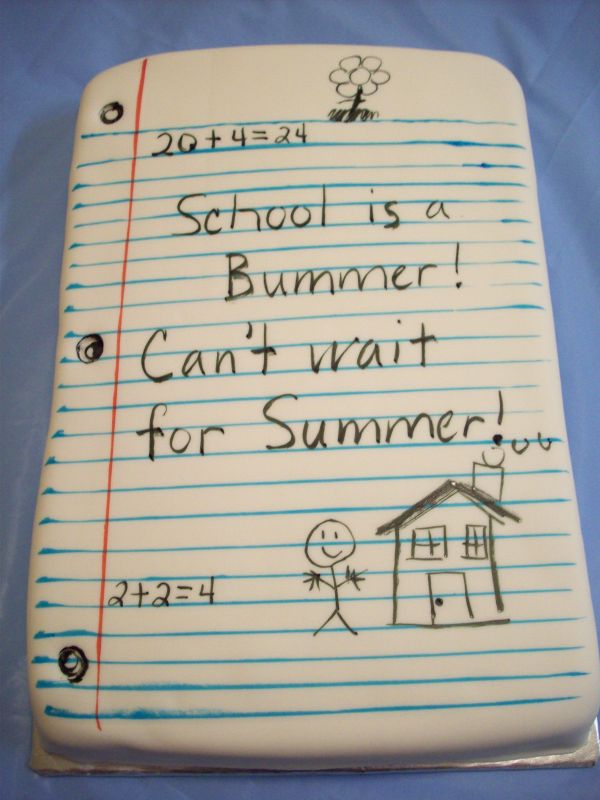 20+4=24
School is a
Bummer!
Can't wait
for Summer!
2+2=4